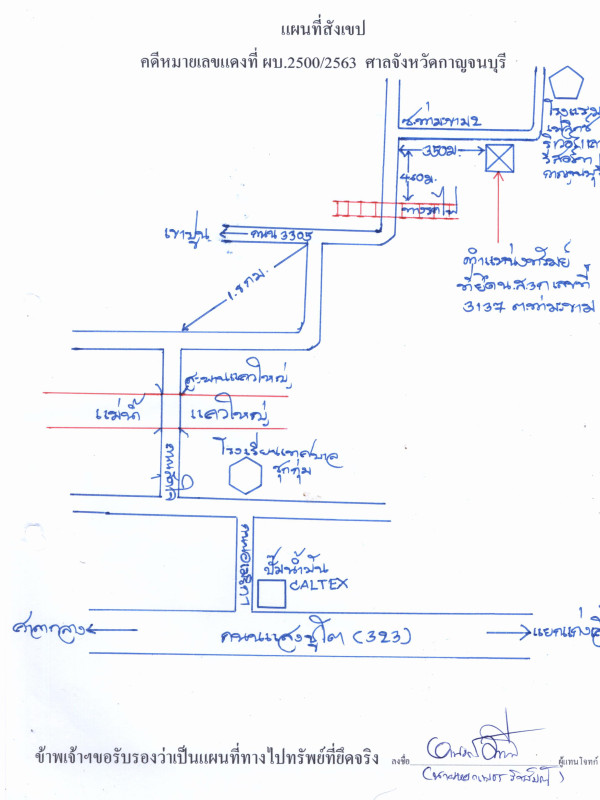 แผนที่สังเขป
คดีหมายเลขแดงที่ ผบ.2500/2563 ศาลจังหวัดกาญจนบุรี
ซ.ท่ามะขาม2
โรงแรม
เฟลิกซ์
ริเวอร์แคว
รีสอร์ท
กาญจนบุรี
350ม.
440ม.
ทางรถไฟ
เขาปูน
ถนน 3305
ตำแหน่งทรัพย์
ที่ยึด น.ส.3ก เลขที่
3137 ต.ท่ามะขาม
1.8 กม.
สะพานแควใหญ่
แม่น้ำ แควใหญ่
โรงเรียนเทศบาล
ปั๊มน้ำมัน
CALTEX
ศาลากลาง
ถนนแสงชูโต (323)
ข้าพเจ้าฯขอรับรองว่าเป็นแผนที่ทางไปทรัพย์ที่ยึดจริง ลงชื่อ ผู้แทนโจทก์